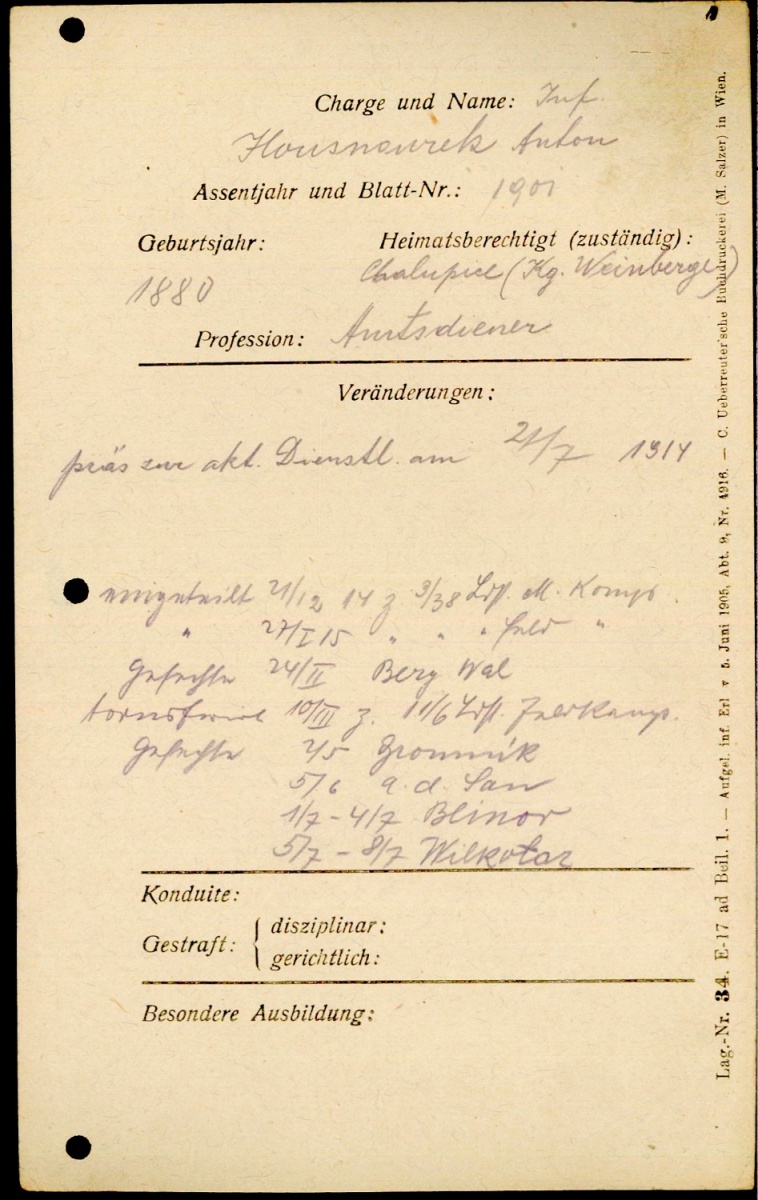 Charge und Name: Inf.
Housnourek Anton
Assentjahr und Blatt-Nr.: 1901
Geburtsjahr: Heimatsberechtigt (zuständig):
1880 Chalupice (Kg. Weinberge)
Profession: Amtsdiener
Veränderungen:
präs zur akt. Dienstl. am 21/7 1914
eingeteilt 21/12 14 z 3/38 Ldst. M. Komp.
" 27/I 15 " " " Feld "
Gefechte 24/II Berg Wal
10/III z. 11/6 Ldst. Feldkomp.
Gefechte 2/5 Gromnik
5/6 a. d. San
1/7 - 4/7 Blinor
5/7 - 8/7 Wilkolaz
Konduite:
Gestraft: { disziplinar:
gerichtlich:
Besondere Ausbildung:
Lag.-Nr. 34. E-17 ad Beil. 1. — Aufgel. inf. Erl v 5. Juni 1905, Abt. 9, Nr. 4916. — C. Ueberreuter'sche Buchdruckerei (M. Salzer) in Wien.